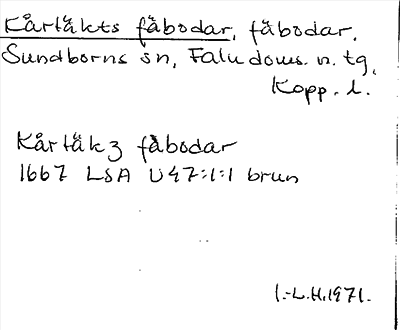 Kårtäkts fäbodar, fäbodar.
Sundborns sn, Falu doms. n. tg,
Kopp. l.
Kårtäkz fåbodar
1667 LSA U47:1:1 brun
I.-L.H. 1971.